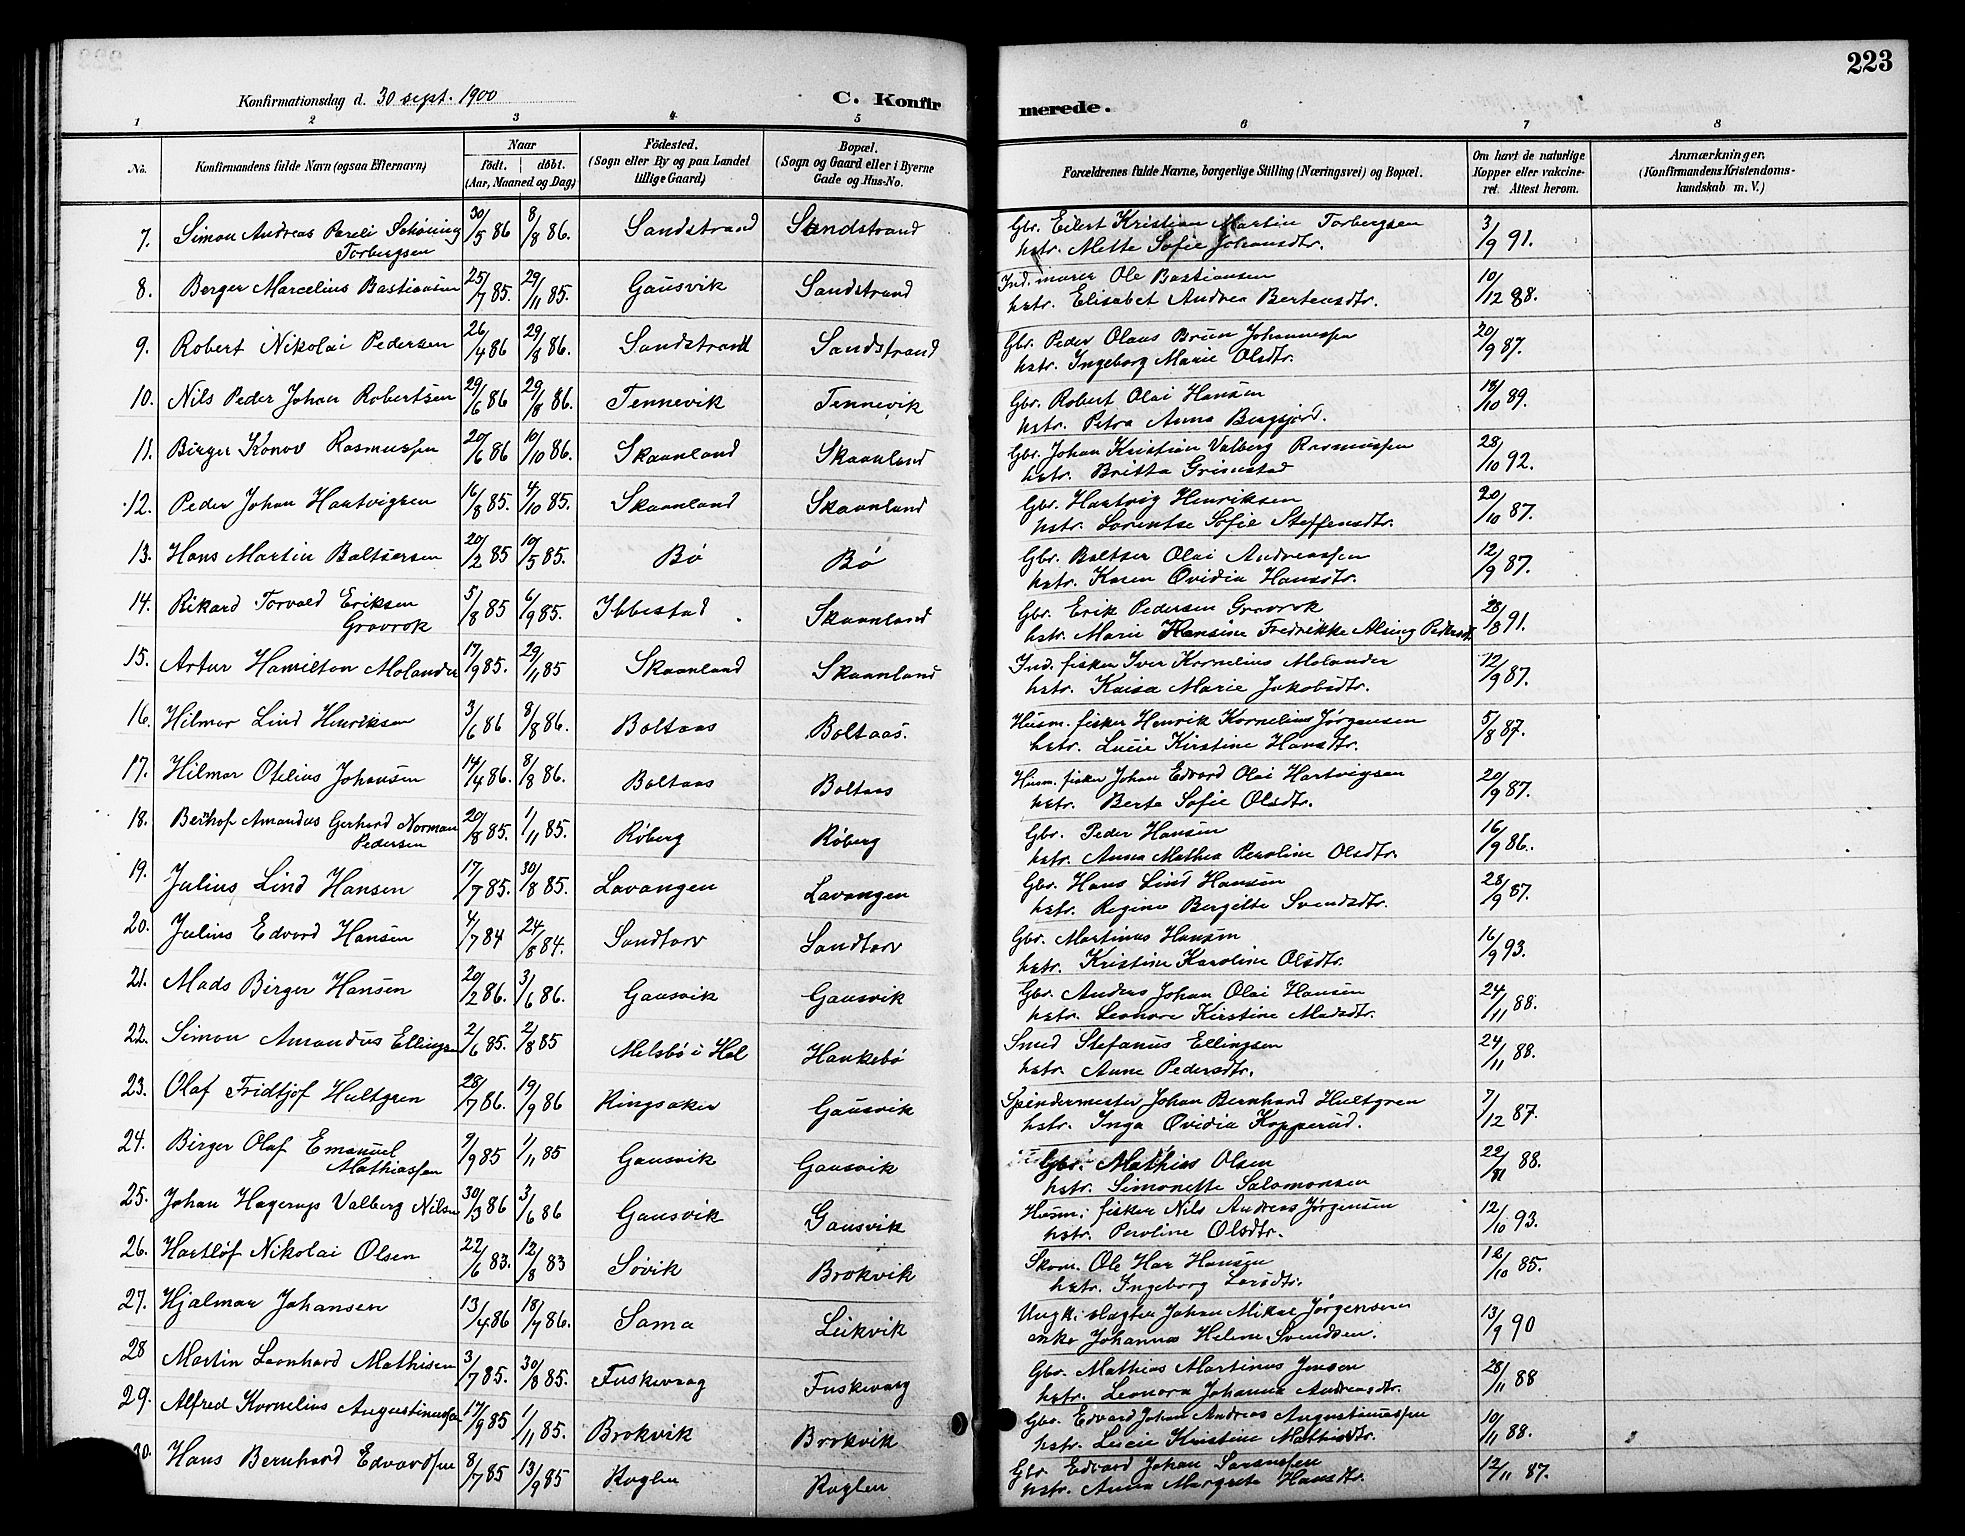 223
Konfirmationsdag d. 30 sept. 1900
C. Konfirmerede.
1 2 3 4 5 6 7 8
No. Konfirmandens fulde Navn (ogsaa Efternavn) Naar födt. döbt. (Aar, Maaned og Dag) Födested. (Sogn eller By og paa Landet tillige Gaard) Bopæl. (Sogn og Gaard eller i Byerne Gade og Hus-No. Forældrenes fulde Navne, borgerlige Stilling (Næringsvei) og Bopæl. Om havt de naturlige Kopper eller vakcineret. Attest herom. Anmærkninger. (Konfirmandens Kristendomskundskab m. V.)
7. Simon Andreas Pareli Schöning 30/5 86 8/8 86. Sandstrand Sandstrand Gbr. Eilert Kristian Martin Torbergsen 3/9 91.
Torbergsen hstr. Mette Sofie Johansdtr.
8. Berger Marcelius Bastiansen 25/7 85. 29/11 85. Gausvik Sandstrand Ind. murer Ole Bastiansen 10/12 88.
hstr. Elisabet Andrea Bertensdtr.
9. Robert Nikolai Pedersen 26/4 86 29/8 86. Sandstrand Sandstrand Gbr. Peder Olaus Bruun Johannessen 20/9 87.
hstr. Ingeborg Marie Olsdtr.
10. Nils Peder Johan Robertsen 29/6 86 29/8 86. Tennevik Tennevik Gbr. Robert Olai Hansen 18/10 89.
hstr. Petra Anna Bergfjord.
11. Birger Konov Rasmussen 20/6 86 10/10 86. Skaanland Skaanland Gbr. Johan Kristian Valberg Rasmussen 28/10 92.
hstr. Britta Grimstad
12. Peder Johan Hartvigsen 16/8 85. 4/10 85. Skaanland Skaanland Gbr. Hartvig Henriksen 20/10 87.
hstr. Lorentse Sofie Steffensdtr.
13. Hans Martin Baltsersen 20/2 85 10/5 85. Bö Bö Gbr. Baltser Olai Andreassen 12/9 87.
hstr. Karen Ovidia Hansdtr.
14. Rikard Torvald Eriksen 5/8 85 6/9 85. Ibbestad Skaanland Gbr. Erik Pedersen Gravrok 28/8 91.
Gravrok hstr. Marie Hansine Fredrikke Alsing Pedersdt.
15. Artur Hamilton Molander 17/9 85. 29/11 85 Skaanland Skaanland Ind. fisker Iver Kornelius Molander 12/9 87.
hstr. Kaisa Marie Jakobsdtr.
16. Hilmar Lind Henriksen 3/6 86 8/8 86. Boltaas Boltaas. Husm. fisker Henrik Kornelius Jørgensen 5/8 87.
hstr. Lucie Kirstine Hansdtr.
17. Hilmar Otelius Johansen 14/4 86. 8/8 86. Boltaas Boltaas Husm. fisker Johan Edvard Olai Hartvigsen 20/9 87.
hstr. Berte Sofie Olsdtr.
18. Amandus Gerhard Norman 20/8 85. 1/11 85. Röberg Röberg Gbr. Peder Hansen 16/9 86.
Pedersen hstr. Anna Mathea Peroline Olsdtr.
19. Julius Lind Hansen 17/7 85. 30/8 85. Lavangen Lavangen Gbr. Hans Lind Hansen 28/9 87.
hstr. Regine Bergitte Svendsdtr.
20. Julius Edvard Hansen 4/7 84 24/8 84. Sandtorv Sandtorv Gbr. Martinus Hansen 16/9 93.
hstr. Kristine Karoline Olsdtr.
21. Mads Birger Hansen 20/2 86. 3/6 86. Gausvik Gausvik Gbr. Anders Johan Olai Hansen 24/11 88.
hstr. Leonore Kirstine Madsdtr.
22. Simon Amandus Ellingsen 2/6 85. 2/8 85 Melsbö i Hol Haukebö Smed Stefanus Ellingsen 24/11 88.
hstr. Anne Pedersdtr.
23. Olaf Fridtjof Hultgren 28/7 86. 19/9 86 Ringsaker Gausvik Spindermester Johan Bernhard Hultgren 7/12 87.
hstr. Inga Ovidia Kopperud.
24. Birger Olaf Emanuel 9/9 85 1/11 85 Gausvik Gausvik Gbr. Mathias Olsen 22/11 88.
Mathiassen hstr. Simonette Salomonsen
25. Johan Hagerup Valberg Nilsen 30/3 86 3/6 86 Gausvik Gausvik Husm. fisker Nils Andreas Jørgensen 12/10 93.
hstr. Peroline Olsdtr.
26. Hartlöf Nikolai Olsen 22/6 83. 12/8 83 Sövik Brokvik Skom. Ole Hansen 12/10 85.
hstr. Ingeborg Larsdtr.
27. Hjalmar Johansen 13/4 86 18/7 86. Sama Leikvik Ungk. slagter Johan Mikal Jørgensen 13/9 90
enke Johanna Helene Svendsen.
28 Martin Leonhard Mathisen 3/7 85. 30/8 85. Fuskevaag Fuskevaag Gbr. Mathias Martinus Jensen 28/11 88
hstr. Leonora Johanna Andreasdtr.
29. Alfred Kornelius Augustinussen 17/9 85 1/11 85. Brokvik Brokvik Gbr. Edvard Johan Andreas Augustinussen 10/11 88.
hstr. Lucie Kristine Mathisdtr.
30. Hans Bernhard Edvardsen 8/7 85 13/9 85 Koglen Koglen Gbr. Edvard Johan Sørensen 12/11 87.
hstr. Anna Margrete Hansdtr.